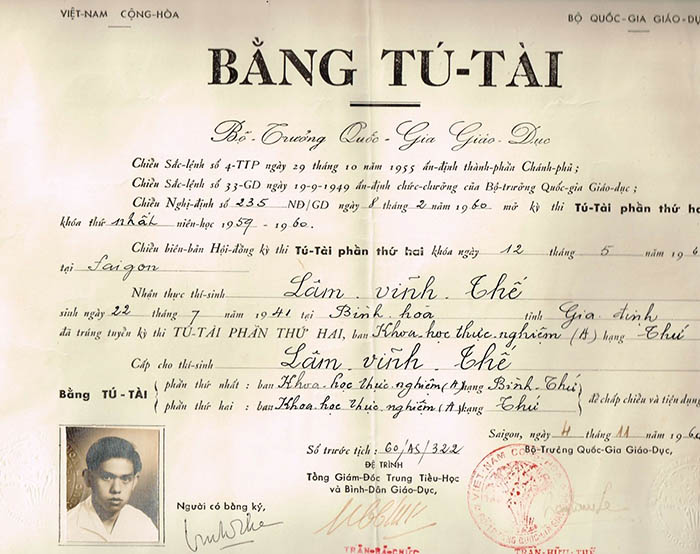 VIỆT-NAM CỘNG-HÒA
BỘ QUỐC-GIA GIÁO-DỤC
BẰNG TÚ-TÀI
Bộ-Trưởng Quốc-Gia Giáo-Dục
Chiếu Sắc-lệnh số 4-TTP ngày 29 tháng 10 năm 1955 ấn-định thành-phần Chánh-phủ ;
Chiếu Sắc-lệnh số 33-GD ngày 19-9-1949 ấn-định chức-chưởng của Bộ-trưởng Quốc-gia Giáo-dục ;
Chiếu Nghị-định số 235 NĐ/GD ngày 8 tháng 2 năm 1960 mở kỳ thi Tú-Tài phần thứ ha
khóa thứ nhất niên-học 1959 - 1960.
Chiếu biên-bản Hội-đồng kỳ thi Tú-Tài phần thứ hai khóa ngày 12 tháng 5 năm 196
tại Saigon
Nhận thực thí-sinh Lâm Vĩnh Thế
sinh ngày 22 tháng 7 năm 1941 tại Bình hoa tỉnh Gia định
đã trúng tuyển kỳ thi TÚ-TÀI PHẦN THỨ HAI, ban Khoa học thực nghiệm (A) hạng Thứ
Cấp cho thí-sinh Lâm Vĩnh Thế
Bằng TÚ-TÀI
phần thứ nhất : ban Khoa học thực nghiệm (A) hạng Bình-Thứ
phần thứ hai : ban Khoa học thực nghiệm (A) hạng Thứ
để chấp chiếu và tiện dụng
Saigon, ngày 4 tháng 11 năm 196
Số trước tịch : 60/AS/322
Bộ-Trưởng Quốc-Gia Giáo-Dục,
ĐỆ TRÌNH
Tổng Giám-Đốc Trung Tiểu-Học
và Bình-Dân Giáo-Dục,
Người có bằng ký,
VIỆT-NAM CỘNG-HÒA
TRẦN-BÁ-CHỨC
TRẦN-HỮU-THẾ